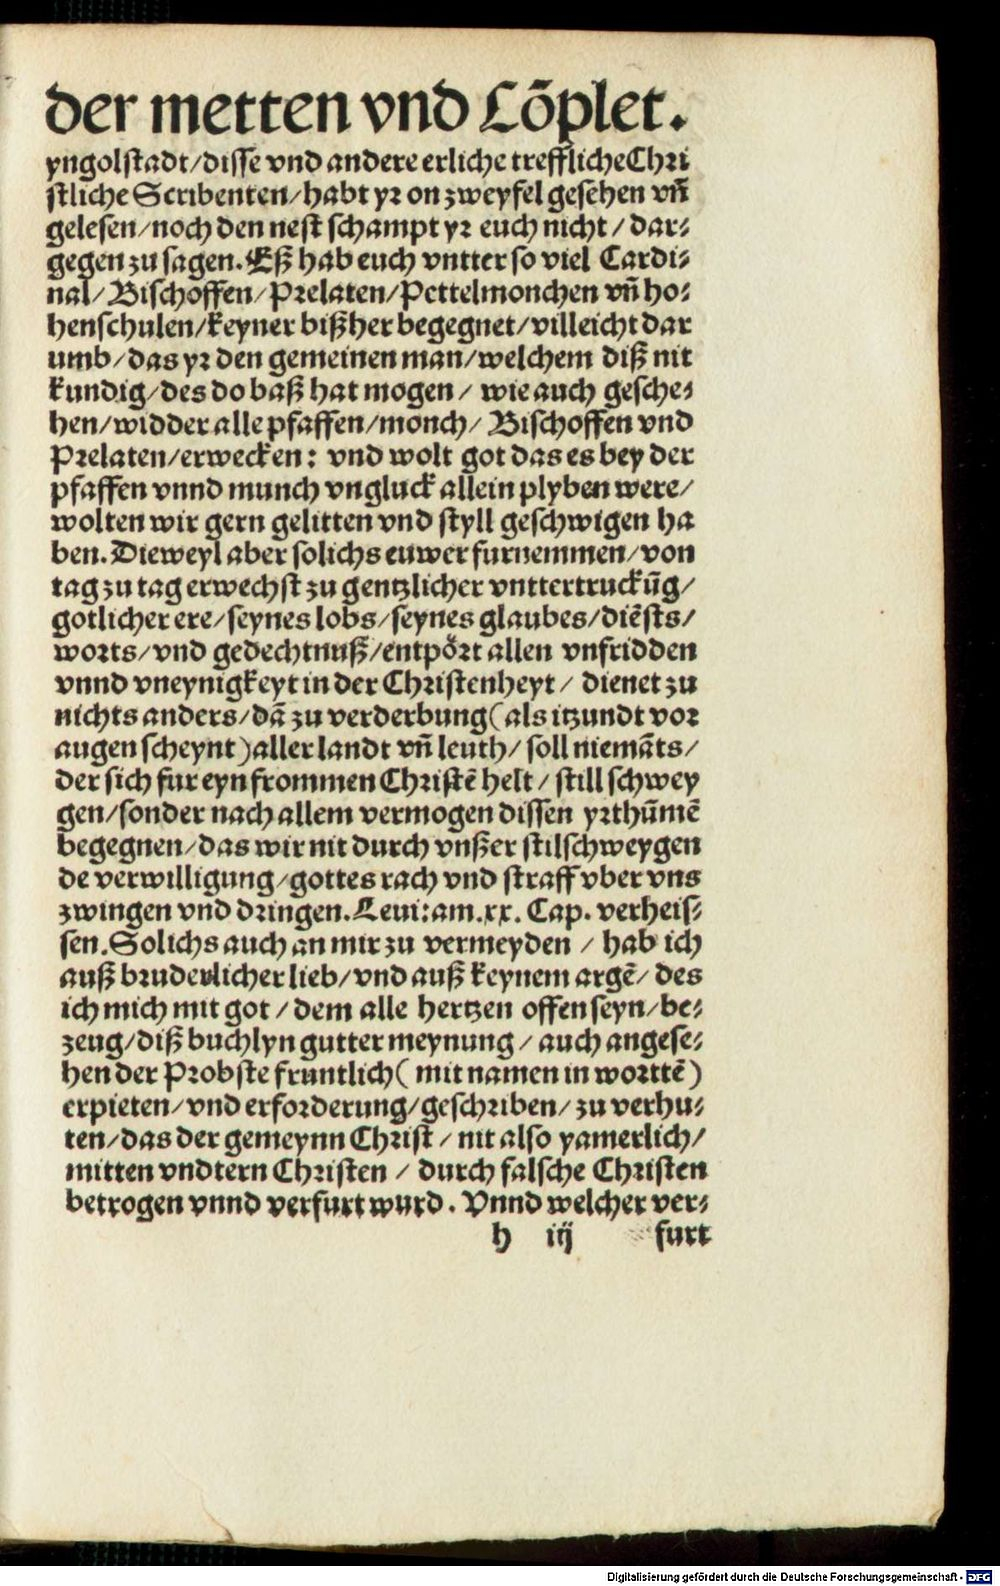 der metten vnd Cõplet.
yngolstadt/disse vnd andere erliche trefflicheChri
stliche Scribenten/habt yr on zweyfel gesehen vñ
gelesen/noch den nest schampt yr euch nicht/dar-
gegen zu sagen. Eß hab euch vntter so viel Cardi-
nal/Bischoffen/Prelaten/Pettelmonchen vñ ho-
henschulen/keyner bißher begegnet/villeicht dar
umb/das yr den gemeinen man/welchem diß nit
kundig/des do baß hat mogen/ wie auch gesche-
hen/widder alle pfaffen/monch/ Bischoffen vnd
Prelaten/erwecken: vnd wolt got das es bey der
pfaffen vnnd munch vngluck allein plyben were/
wolten wir gern gelitten vnd styll geschwigen ha
ben. Dieweyl aber solichs euwer furnemmen/von
tag zu tag erwechst zu gentzlicher vnttertruckũg/
gotlicher ere/seynes lobs/seynes glaubes/diẽsts/
worts/vnd gedechtnuß/entpört allen vnfridden
vnnd vneynigkeyt in der Christenheyt/ dienet zu
nichts anders/dã zu verderbung (als itzundt vor
augen scheynt) aller landt vñ leuth/ soll niemãts/
der sich fur eyn frommen Christẽ helt/ still schwey
gen/sonder nach allem vermogen dissen yrthũmẽ
begegnen/das wir nit durch vnßer stilschweygen
de verwilligung/gottes rach vnd straff vber vns
zwingen vnd dringen. Leui: am. xx. Cap. verheis-
sen. Solichs auch an mir zu vermeyden / hab ich
auß bruderlicher lieb/vnd auß keynem argẽ/ des
ich mich mit got / dem alle hertzen offen seyn/be-
zeug/diß buchlyn gutter meynung / auch angese-
hen der Probste fruntlich (mit namen in worttẽ)
erpieten/vnd erforderung/geschriben/ zu verhu-
ten/das der gemeynn Christ / nit also yamerlich/
mitten vndtern Christen / durch falsche Christen
betrogen vnnd verfurt wurd. Vnnd welcher ver-
h iij furt
Digitalisierung gefördert durch die Deutsche Forschungsgemeinschaft - DFG